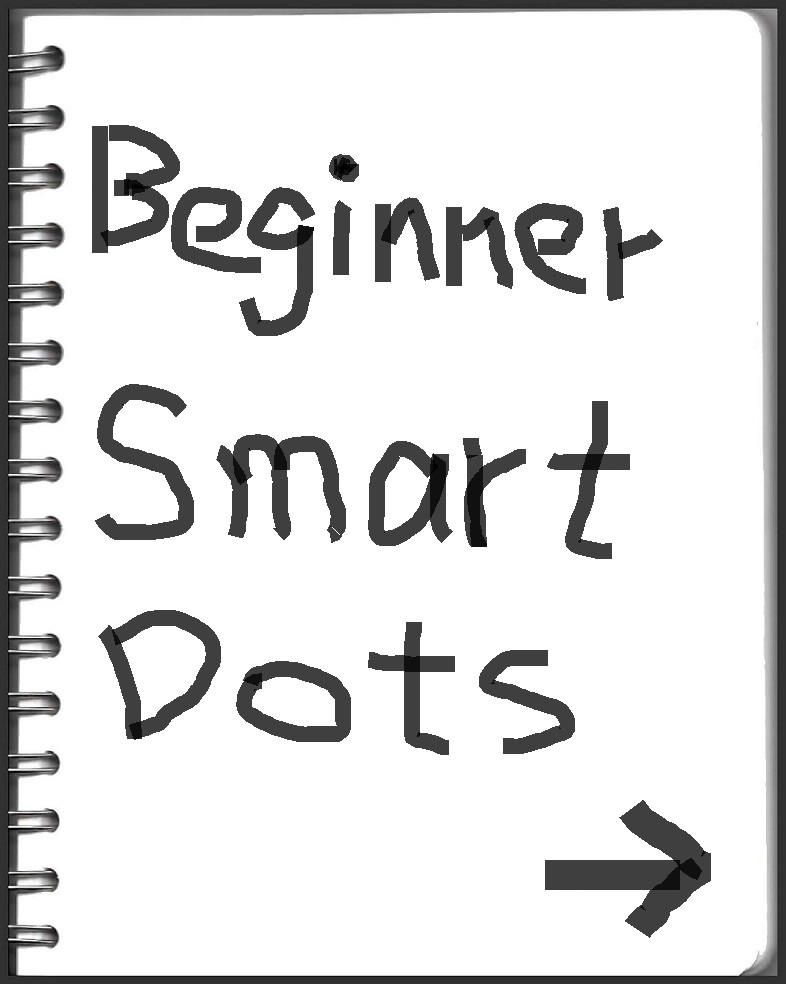 Beginner
Smart
Dots